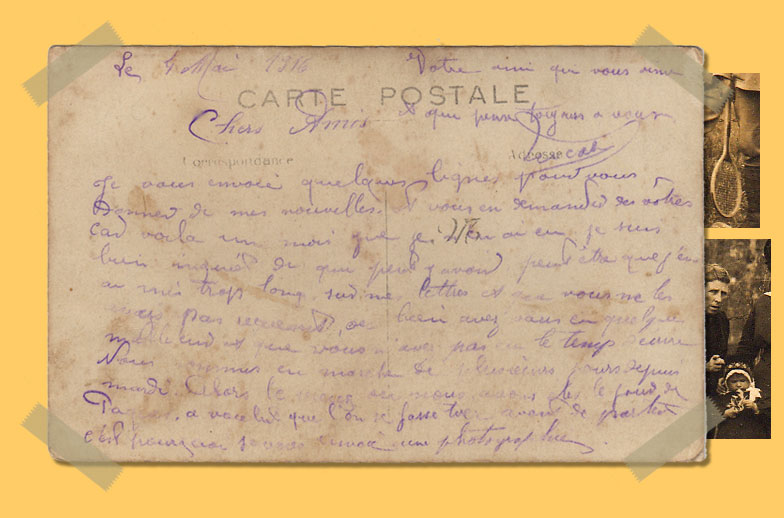 Le 4 Mai 1916
Votre ami qui vous aime
CARTE POSTALE
Chers Amis
et que pense toujours a vous
Correspondance
Adresse
Je vous envoie quelques lignes pour vous
donner de mes nouvelles. et vous en demander des vôtres
car voila un mois que je n'en ai eu je suis
bien inquiet de que peut y avoir peut être que j'en
ai mis trop long sur mes lettres et que vous ne les
pas ou bien avez vous eu quelque
et que vous n'avez pas eu le temps
Nous sommes en marche de plusieurs jours depuis
mardi. Alors le nous avons le jour de
a voulu que l'on se fasse tirer avant de partir
c'est pourquoi je vous envoie une photographie.